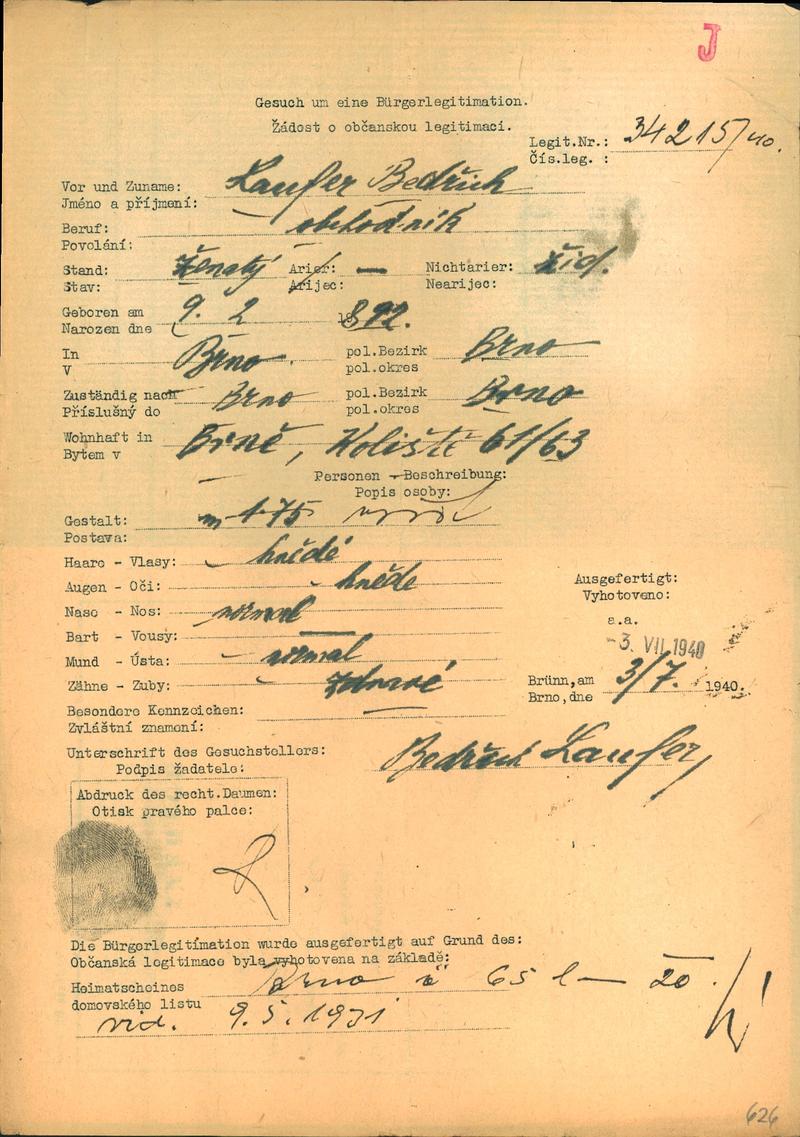 J
Gesuch um eine Bürgerlegitimation.
Žádost o občanskou legitimaci.
Legit.Nr.: 34215/40.
Čís.leg. :
Vor und Zuname: Laufer Bedřich
Jméno a příjmení:
Beruf: obchodník
Povolání:
Stand: ženatý Arier: — Nichtarier: žid.
Stav: Arijec: Nearijec:
Geboren am 9. 2 1892.
Narozen dne
In Brno. pol.Bezirk Brno
V pol.okres
Zuständig nach Brno pol.Bezirk Brno
Příslušný do pol.okres
Wohnhaft in Brně, Koliště 61/63
Bytem v
Personen - Beschreibung:
Popis osoby:
Gestalt: m 1.75
Postava:
Haare - Vlasy: hnědé
Augen - Oči: hněde
Nase - Nos: normal
Bart - Vousy: —
Mund - Ústa: normal
Zähne - Zuby: zdravé
Besondere Kennzeichen: —
Zvláštní znamení:
Ausgefertigt:
Vyhotoveno:
a.a.
-3. VII. 1940
Brünn,am 3/7. 1940.
Brno,dne
Unterschrift des Gesuchstellers: Bedřich Laufer
Podpis žadatele:
Abdruck des recht.Daumen:
Otisk pravého palce:
Die Bürgerlegitimation wurde ausgefertigt auf Grund des:
Občanská legitimace byla vyhotovena na základě:
Heimatscheines Brno č 65 l — 20.
domovského listu
vid. 9.5.1931
626